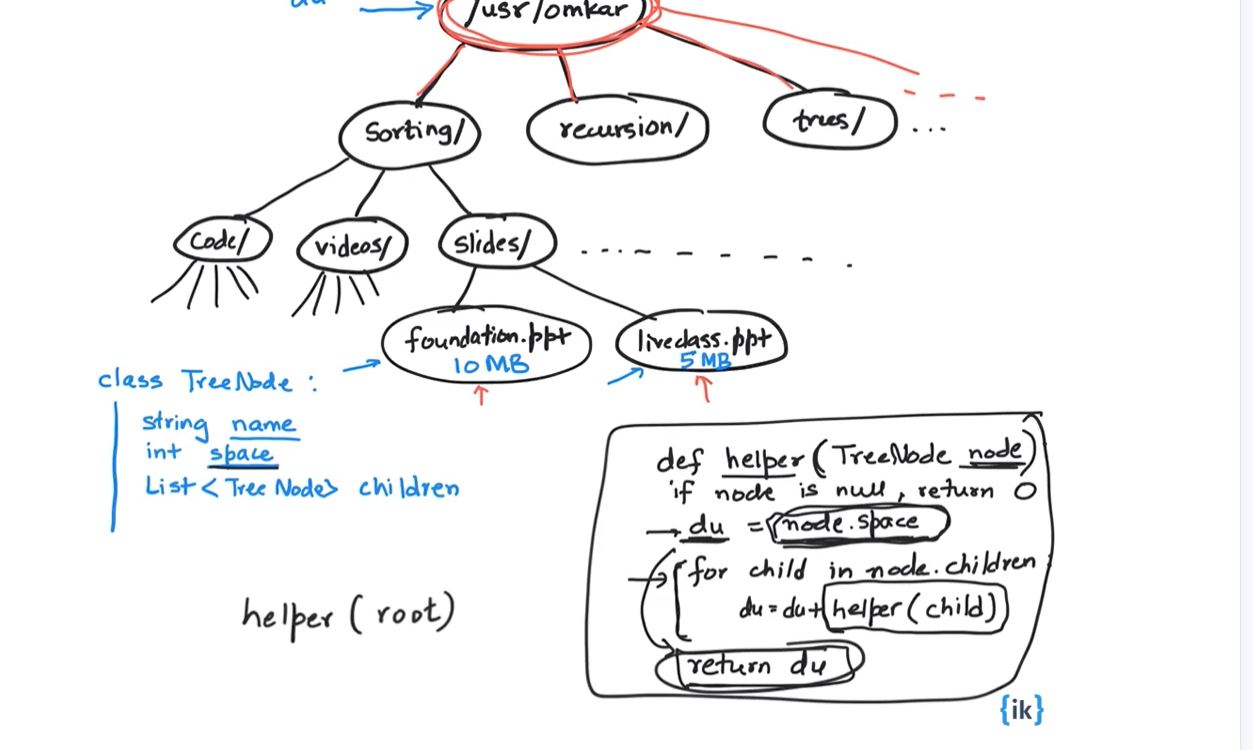 du
/usr/omkar
Sorting/
recursion/
trees/
...
Code/
videos/
slides/
foundation.ppt
10 MB
liveclass.ppt
5 MB
class TreeNode :
string name
int space
List < Tree Node> children
helper ( root )
def helper ( TreeNode node )
if node is null, return 0
du = node.space
for child in node.children
du = du + helper ( child )
return du
{ik}